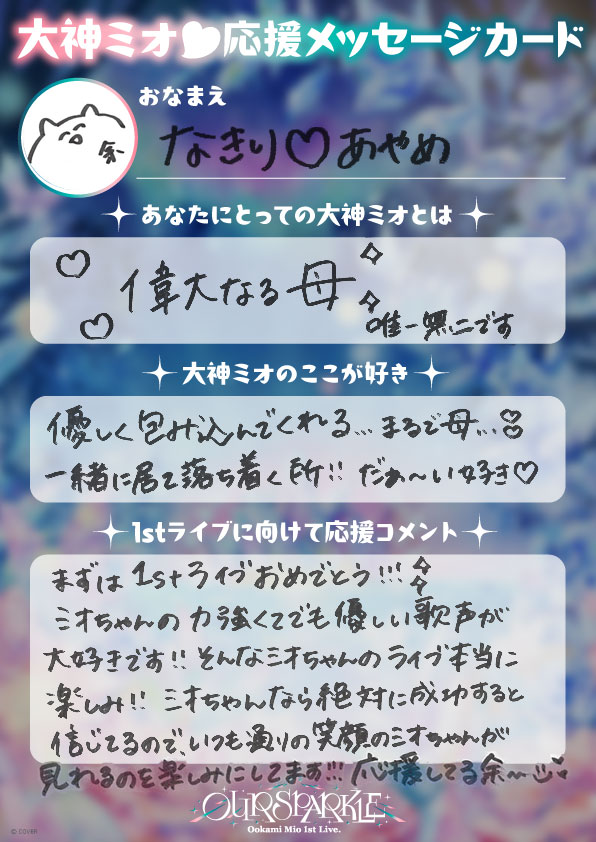 大神ミオ応援メッセージカード
おなまえ
余
なきり♡あやめ
あなたにとっての大神ミオとは
偉大なる母
唯一無二です
大神ミオのここが好き
優しく包み込んでくれる…まるで母…
一緒に居て落ち着く所!! だぁ〜い好き♡
1stライブに向けて応援コメント
まずは1stライブおめでとう!!!
ミオちゃんの力強くてでも優しい歌声が
大好きです!! そんなミオちゃんのライブ本当に
楽しみ!! ミオちゃんなら絶対に成功すると
信じてるので、いつも通りの笑顔のミオちゃんが
見れるのを楽しみにしてます!!! 応援してる余〜
OUR SPARKLE
Ookami Mio 1st Live.
© COVER